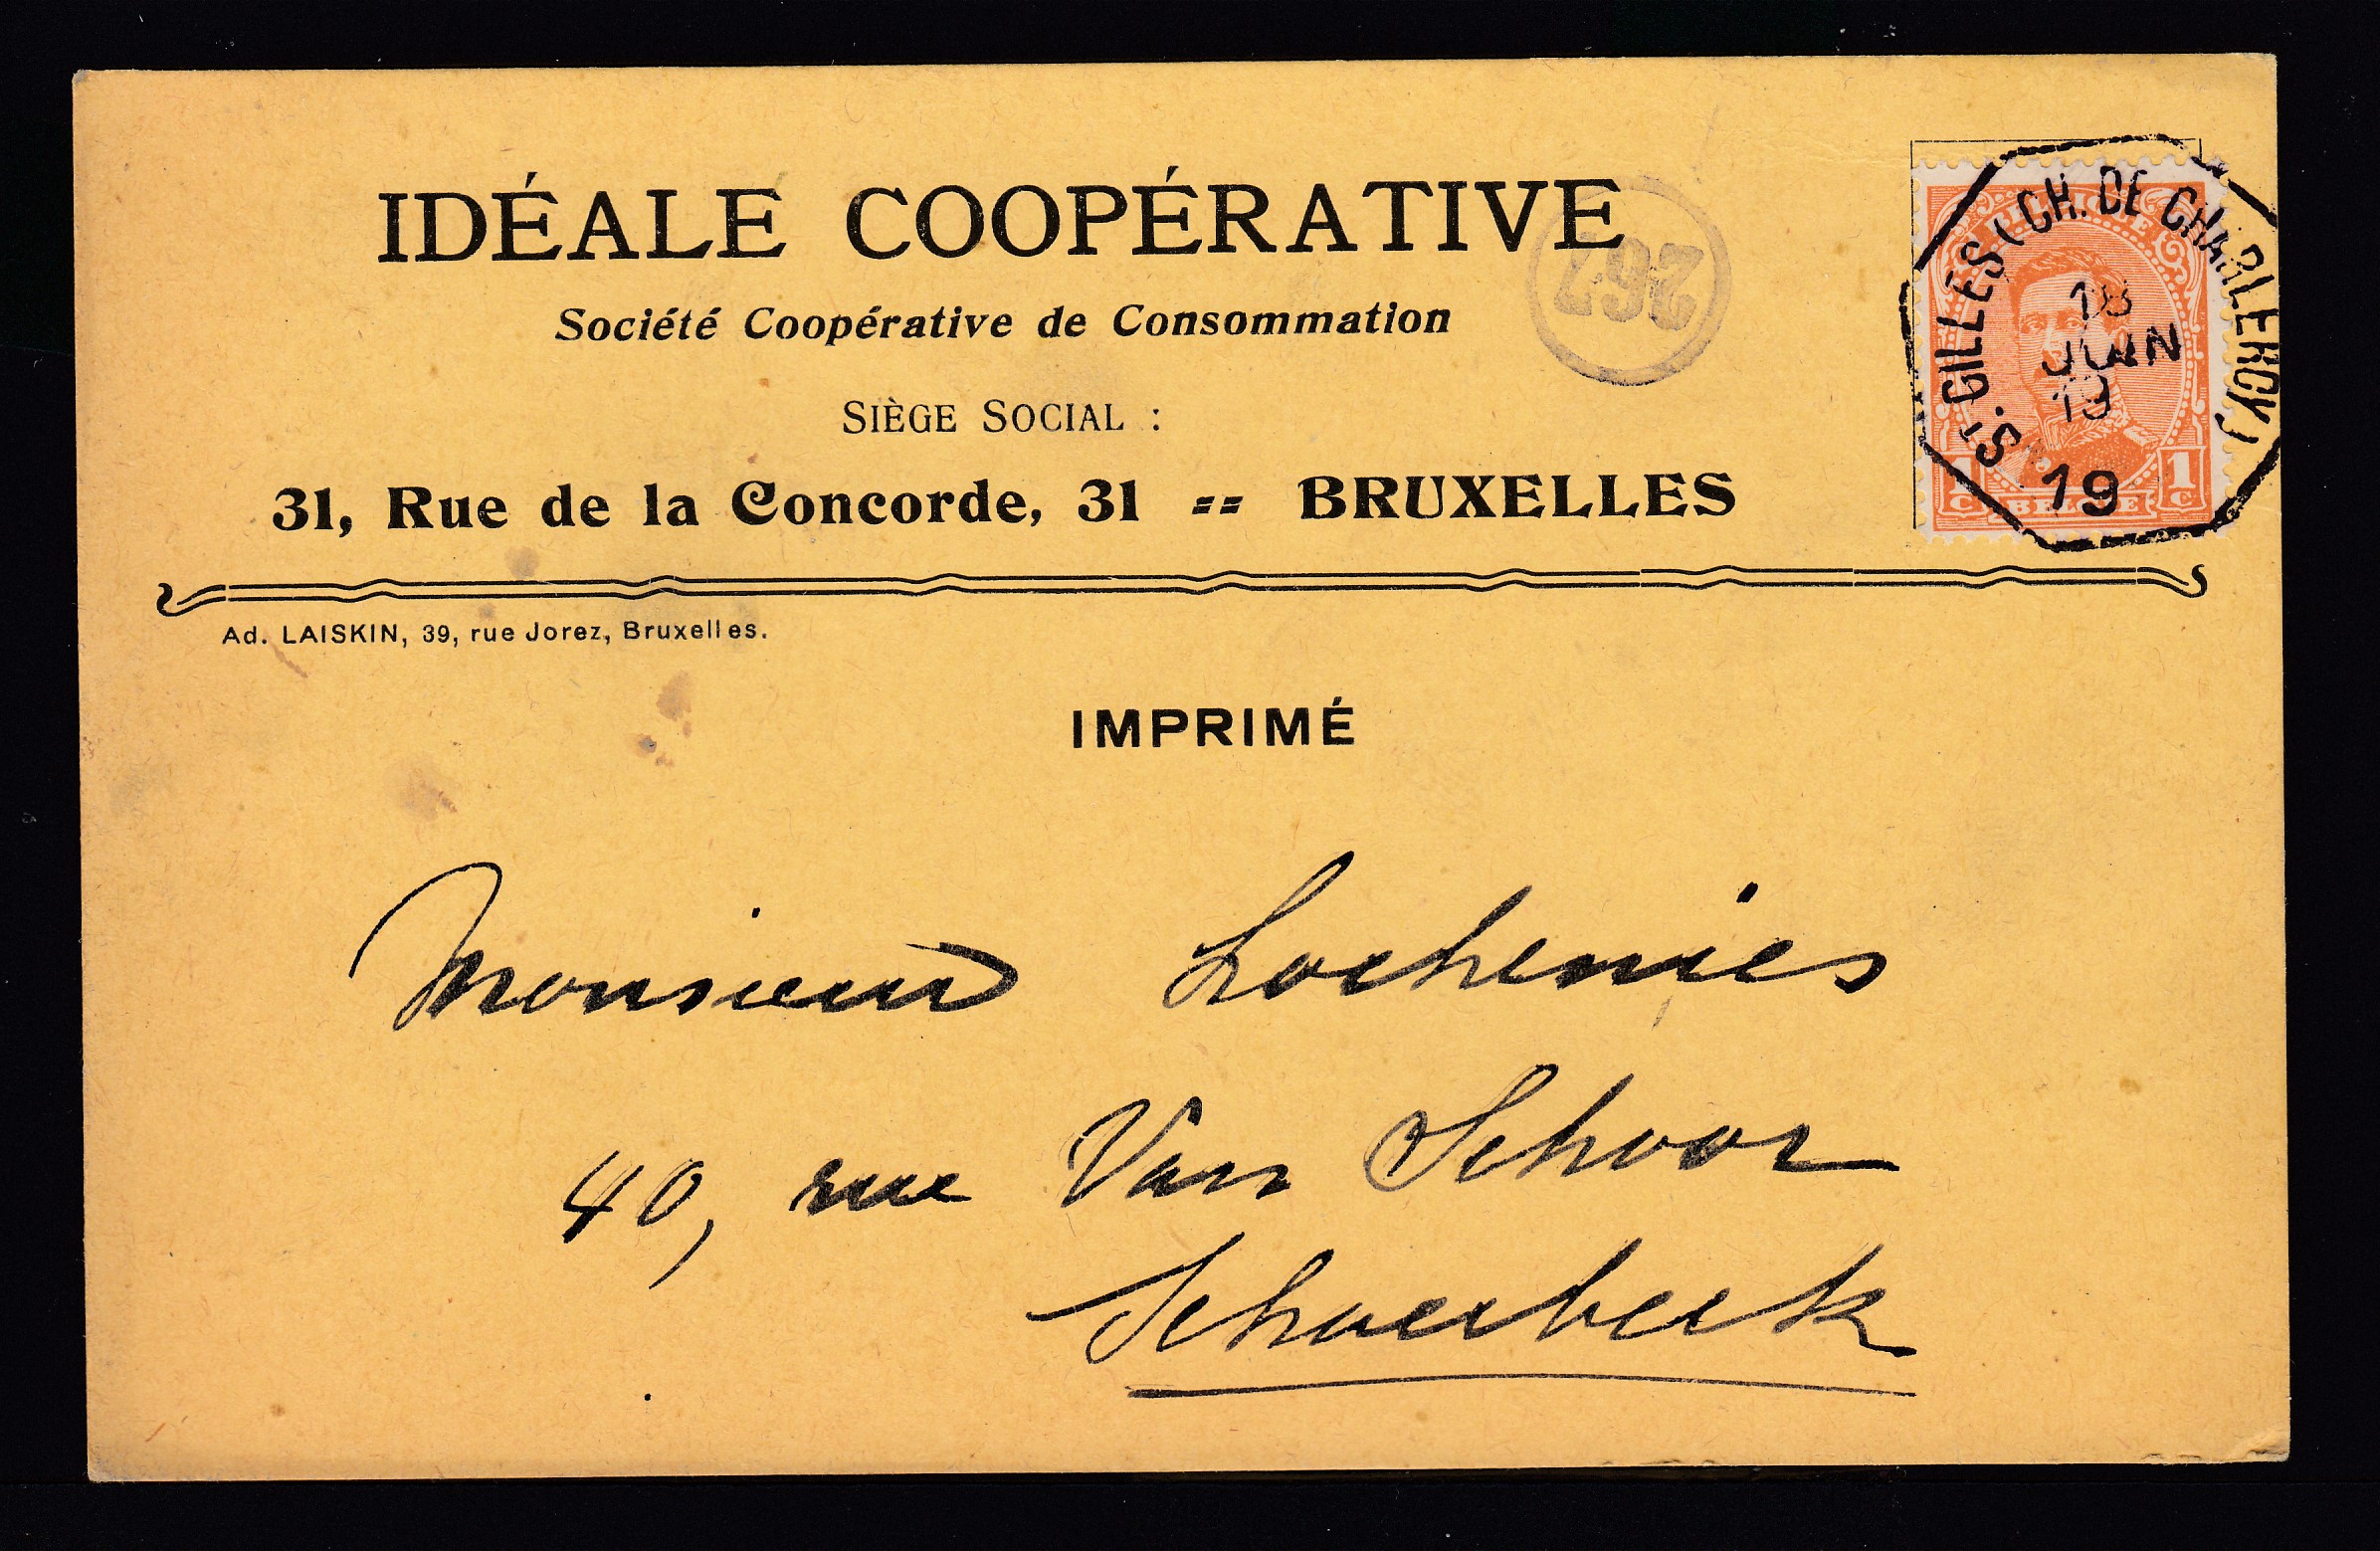 IDÉALE COOPÉRATIVE
Société Coopérative de Consommation
267
SIÈGE SOCIAL :
31, Rue de la Concorde, 31 == BRUXELLES
ST. GILLES (CH. DE CHARLEROY)
18
JUIN
19
19
BELGIQUE
1 C BELGIË 1 C
Ad. LAISKIN, 39, rue Jorez, Bruxelles.
IMPRIMÉ
Monsieur Lochenies
40, rue Van Schoor
Schaerbeek